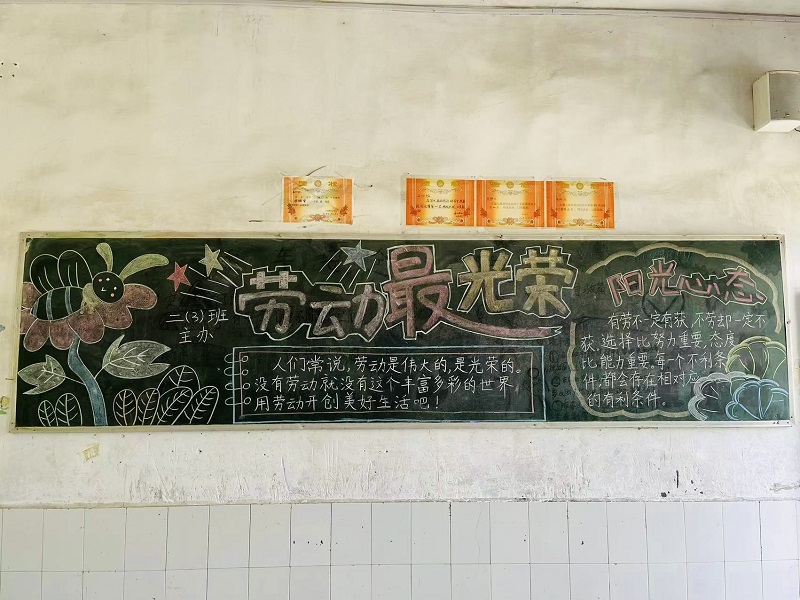 奖状
劳动最光荣
二(3)班
主办
人们常说，劳动是伟大的，是光荣的。
没有劳动就没有这个丰富多彩的世界，
用劳动开创美好生活吧！
阳光心态
有劳不一定有获，不劳却一定不
获，选择比努力重要，态度
比能力重要。每一个不利条
件，都会存在相对应
的有利条件。